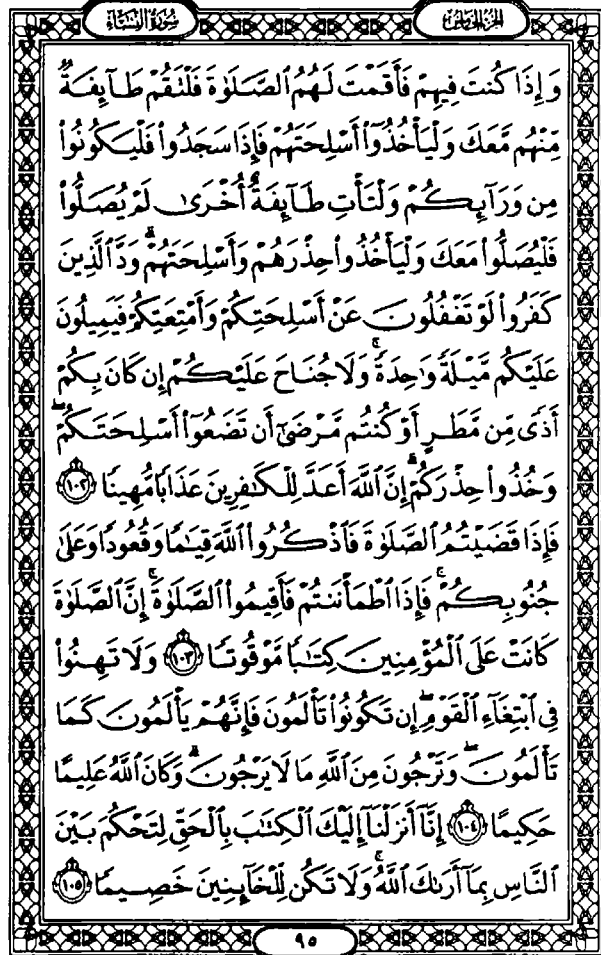 سُورَةُ النِّسَاءِ
الجزء الخامس
وَإِذَا كُنتَ فِيهِمْ فَأَقَمْتَ لَهُمُ ٱلصَّلَوٰةَ فَلْتَقُمْ طَآئِفَةٌ
مِّنْهُم مَّعَكَ وَلْيَأْخُذُوٓا۟ أَسْلِحَتَهُمْ فَإِذَا سَجَدُوا۟ فَلْيَكُونُوا۟
مِن وَرَآئِكُمْ وَلْتَأْتِ طَآئِفَةٌ أُخْرَىٰ لَمْ يُصَلُّوا۟
فَلْيُصَلُّوا۟ مَعَكَ وَلْيَأْخُذُوا۟ حِذْرَهُمْ وَأَسْلِحَتَهُمْ ۗ وَدَّ ٱلَّذِينَ
كَفَرُوا۟ لَوْ تَغْفُلُونَ عَنْ أَسْلِحَتِكُمْ وَأَمْتِعَتِكُمْ فَيَمِيلُونَ
عَلَيْكُم مَّيْلَةً وَٰحِدَةً ۚ وَلَا جُنَاحَ عَلَيْكُمْ إِن كَانَ بِكُمْ
أَذًى مِّن مَّطَرٍ أَوْ كُنتُم مَّرْضَىٰٓ أَن تَضَعُوٓا۟ أَسْلِحَتَكُمْ ۖ
وَخُذُوا۟ حِذْرَكُمْ ۗ إِنَّ ٱللَّهَ أَعَدَّ لِلْكَٰفِرِينَ عَذَابًا مُّهِينًا ١٠٢
فَإِذَا قَضَيْتُمُ ٱلصَّلَوٰةَ فَٱذْكُرُوا۟ ٱللَّهَ قِيَٰمًا وَقُعُودًا وَعَلَىٰ
جُنُوبِكُمْ ۚ فَإِذَا ٱطْمَأْنَنتُمْ فَأَقِيمُوا۟ ٱلصَّلَوٰةَ ۚ إِنَّ ٱلصَّلَوٰةَ
كَانَتْ عَلَى ٱلْمُؤْمِنِينَ كِتَٰبًا مَّوْقُوتًا ١٠٣ وَلَا تَهِنُوا۟
فِى ٱبْتِغَآءِ ٱلْقَوْمِ ۖ إِن تَكُونُوا۟ تَأْلَمُونَ فَإِنَّهُمْ يَأْلَمُونَ كَمَا
تَأْلَمُونَ ۖ وَتَرْجُونَ مِنَ ٱللَّهِ مَا لَا يَرْجُونَ ۗ وَكَانَ ٱللَّهُ عَلِيمًا
حَكِيمًا ١٠٤ إِنَّآ أَنزَلْنَآ إِلَيْكَ ٱلْكِتَٰبَ بِٱلْحَقِّ لِتَحْكُمَ بَيْنَ
ٱلنَّاسِ بِمَآ أَرَىٰكَ ٱللَّهُ ۚ وَلَا تَكُن لِّلْخَآئِنِينَ خَصِيمًا ١٠٥
٩٥